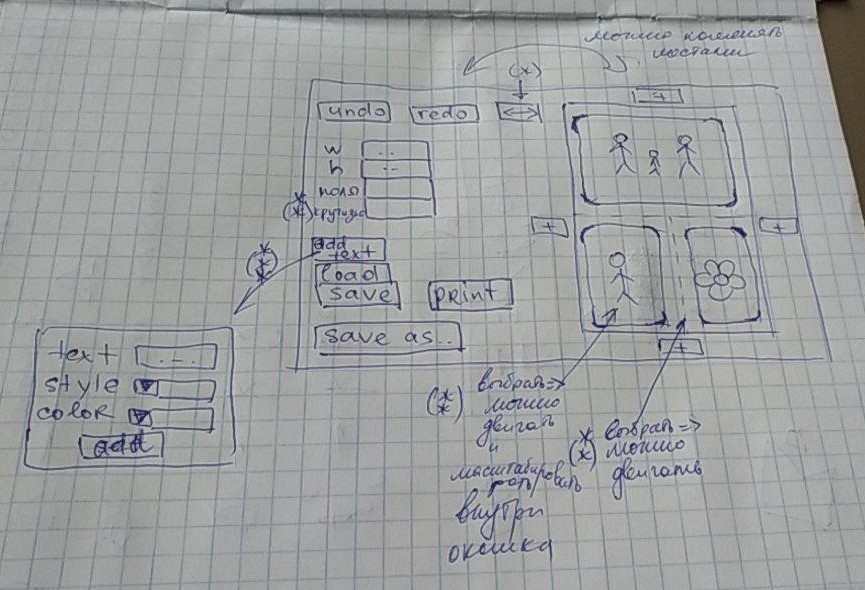 можно поменять
местами
(*)
undo redo <->
+
w ..
h ..
поля
(**) кругизна
+ +
add
text
(***)
load
save print
save as..
+
text ...
style
color
add
(**) выбрать =>
можно
двигать
и
масштабировать
внутри
окошка
*(*) выбрать =>
можно
двигать